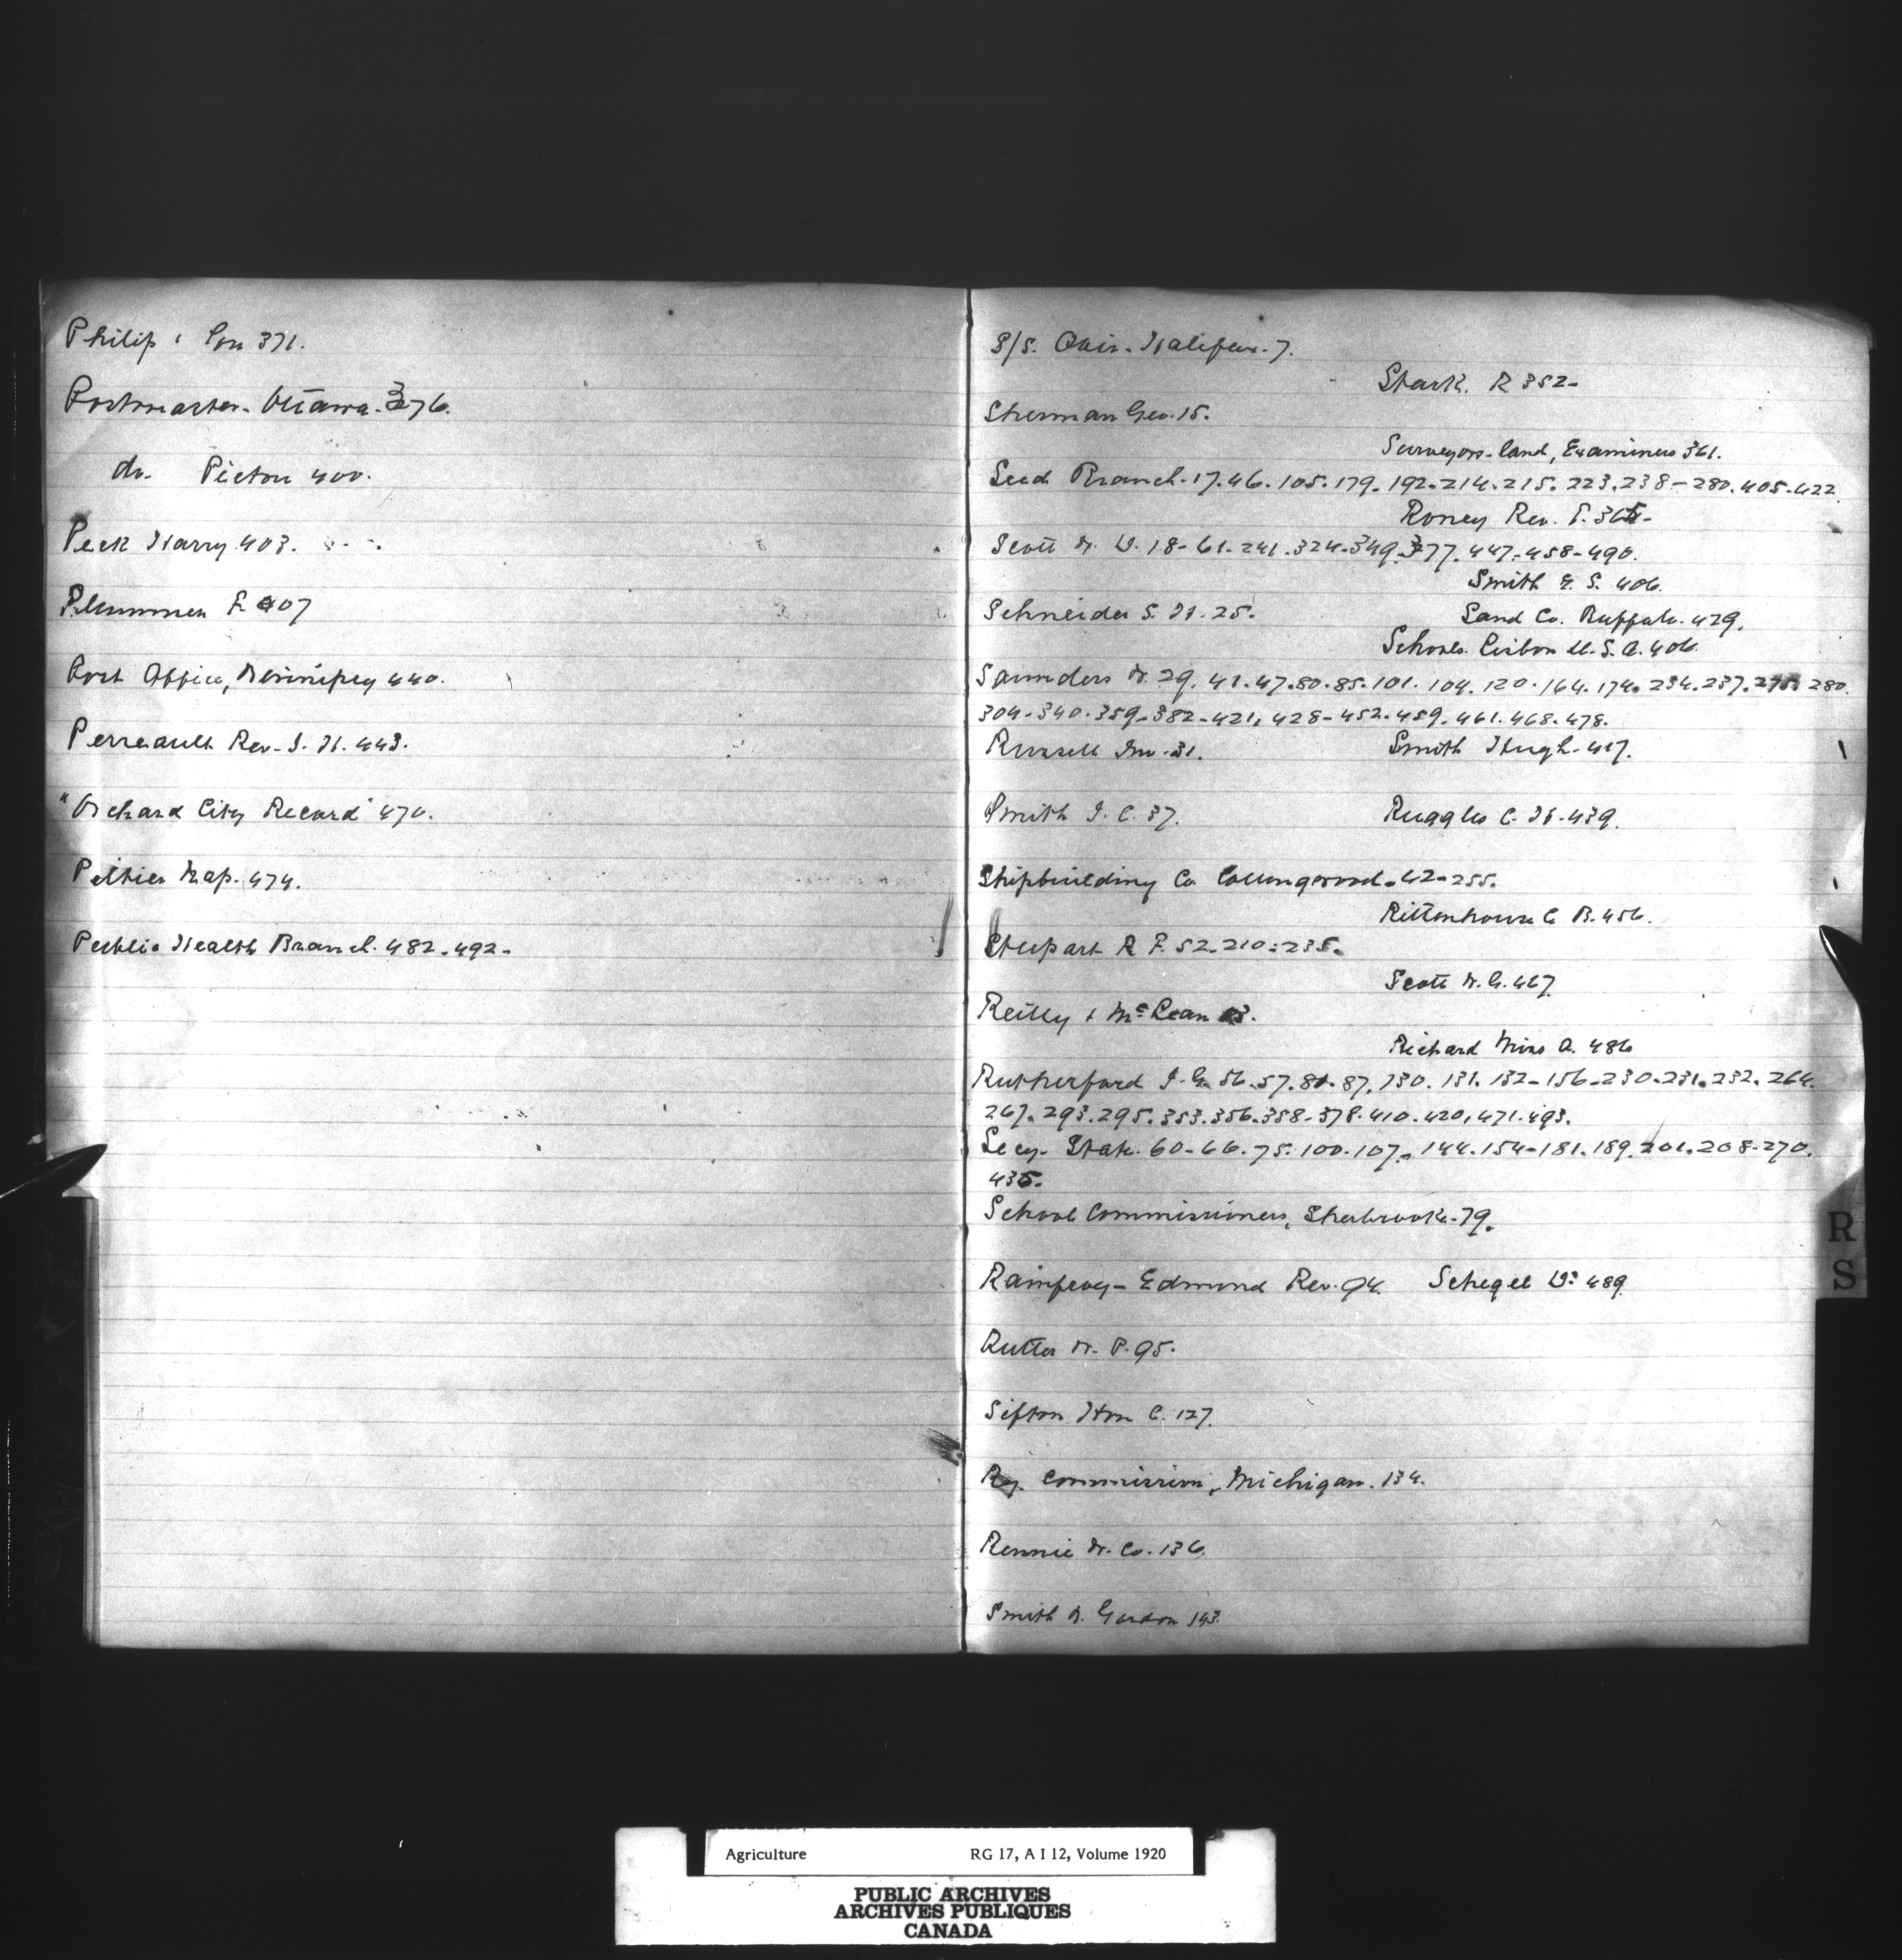 Philip & Son 371.
Postmaster. Ottawa. 376.
do. Picton 400.
Peck Harry 403.
Plummer F. 407
Post Office, Winnipeg 440.
Perreault Rev. J. H. 443.
"Orchard City Record" 470.
Peltier Nap. 474.
Public Health Branch. 482-492-
S/S. Quir. Halifax. 7.
Stark. R 352-
Sherman Geo. 15.
Surveyors-land, Examiners 361.
Seed Branch. 17. 46. 105. 179. 192-214. 215. 223. 238-280. 405-422
Roney Rev. P.
Scott W. D. 18-61-241. 324-349. 377. 447-458-490.
Smith E. S. 406.
Schneider S. H. 25.
Land Co. Buffalo. 429.
Schools. Lisbon U. S. A. 406.
Saunders W. 29. 41. 47. 80. 85. 101. 104. 120. 164. 174. 234. 237. 280.
304-340. 359-382-421, 428-452. 459. 461. 468. 478.
Russell Jno. 31.
Smith Hugh. 417.
Smith J. C. 37.
Ruggles C. H. 439.
Shipbuilding Co. Collingwood. 42-255.
Rittenhouse C B. 456.
Stupart R F. 52-210-235.
Scott W. G. 467.
Reilly & McLean
Richard Miss A. 486
Rutherford J. G. 56. 57. 81. 87. 130. 131. 132-156-230. 231. 232. 264.
267. 293. 295. 353. 356. 358-378. 410. 420, 471. 493.
Secy. State. 60-66. 75. 100. 107. 144. 154-181. 189. 201. 208-270.
435.
School Commissioners, Sherbrooke. 79.
Rainfroy- Edmund Rev. 94.
Schegel W. 489.
Rutter W. P. 95.
Sifton Hon C. 127.
Ry. Commission, Michigan. 134.
Rennie W. Co. 136.
Smith W. Gordon 143.
R
S
Agriculture RG 17, A I 12, Volume 1920
PUBLIC ARCHIVES
ARCHIVES PUBLIQUES
CANADA